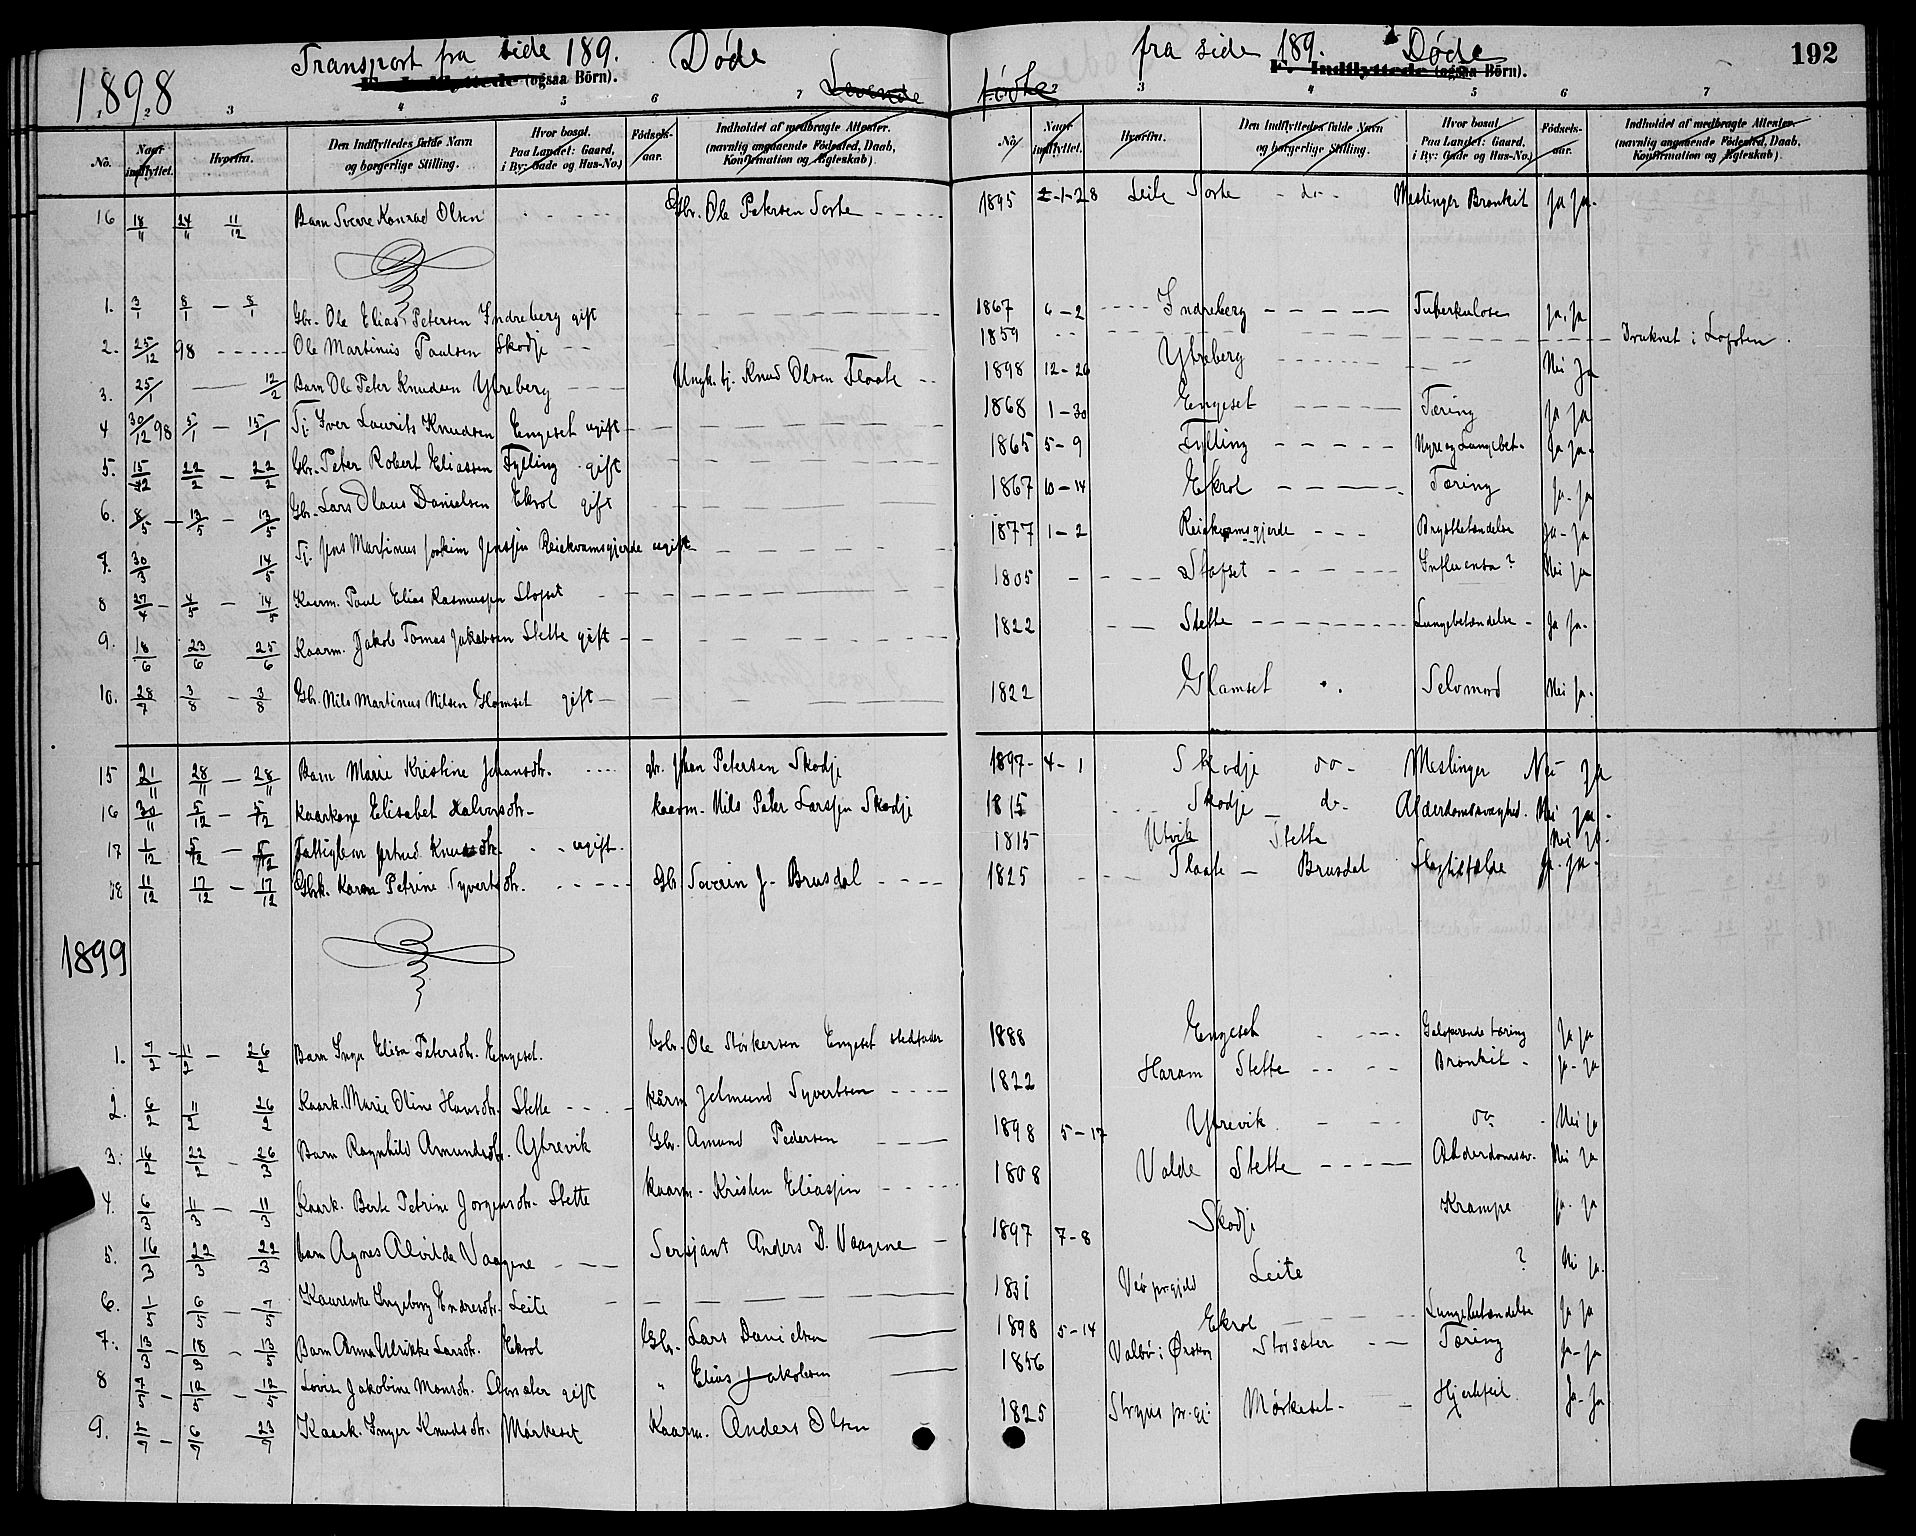 Transport fra side 189. Døde
fra side 189. Døde
192
1898
F. Indflyttede (ogsaa Börn).
Levende
fødte
F. Indflyttede (ogsaa Börn).
1 2 3 4 5 6 7
2 3 4 5 6 7
No. Naar indflyttet. Hvorfra. Den Indflyttedes fulde Navn og borgerlige Stilling. Hvor bosat. Paa Landet: Gaard, i By: Gade og Hus-No.) Födsels-aar. Indholdet af medbragte Attester. (navnlig angaaende Födested, Daab, Konfirmation og Ægteskab).
No. Naar indflyttet. Hvorfra. Den Indflyttedes fulde Navn og borgerlige Stilling. Hvor bosat. Paa Landet: Gaard, i By: Gade og Hus-No.) Födsels-aar. Indholdet af medbragte Attester. (navnlig angaaende Födested, Daab, Konfirmation og Ægteskab).
16 18/11 24/11 11/12 Barn Sverre Konrad Olsen Gbr. Ole Petersen Sorte 1895 2-1-28 Leite Sorte - do - Meslinger Bronkit Ja Ja.
1. 3/1 8/1 - 8/1 Gbr. Ole Elias Petersen Indreberg gift 1867 6-2 Indreberg Tuberkulose Ja. Ja
2. 25/12 98 Ole Martinus Paulsen Skodje 1859 Druknet i Lofoten.
3. 25/1 - 12/2 Barn Ole Peter Knudsen Ytreberg Ungk. tj. Knud Olsen Flaate 1898 12-26 Ytreberg Nei Ja
4 30/12 98 5/1 - 15/1 Tj. Iver Laurits Knudsen Engeset ugift 1868 1-30 Engeset Tæring Ja Ja
5. 15/12 22/2 - 22/2 Gbr. Peter Robert Eliassen Fylling gift 1865 5-9 Fylling Nyre og Lungebet. Ja Ja.
6. 8/5 - 13/5 - 13/5 Gbr. Lars Olaus Danielsen Ekrol gift 1867 10-14 Ekrol Tæring Ja. Ja
7. 30/3 14/5 Tj. Jens Martinus Joakim Jenssen Reiakvamsgjerde ugift 1877 1-2 Reiakvamsgjerde Brystbetændelse Ja - Ja
8 27/4 - 4/5 - 14/5 Kaarm. Paul Elias Rasmussen Slofset 1805 Slofset Influensa? Nei Ja
9. 18/6 23/6 25/6 Kaarm. Jakob Tomas Jakobsen Stette gift 1822 Stette Lungebetændelse - Ja Ja.
10. 28/7 3/8 - 3/8 Gbr. Nils Martinus Nilsen Glomset gift 1822 Glamset Selvmord Nei Ja.
15 21/11 28/11 - 28/11 Barn Marie Kristine Johansdtr. gbr. Johan Petersen Skodje 1897 - 4-1 Skodje do - Meslinger Nei Ja
16 30/11 5/12 - 5/12 Kaarkone Elisabet Halvorsdtr. kaarm. Nils Peter Larssen Skodje 1815 Skodje do - Alderdomssvaghed. Nei Ja.
17 1/12 5/12 - 5/12 Fattiglem Gertrud Knudsdtr. ugift. 1815 Utvik Stette Nei Ja.
18 11/12 17/12 - 17/12 Gbrk. Karen Petrine Syvertsdtr. Gbr. Severin J. Brusdal 1825 Flaate - Brusdal Slagtilfælde Ja. Ja.
1899
1. 7/2 11/2 - 26/2 Barn Inga Elisa Petersdtr. Engeset. Gbr. Ole Störkersen Engeset stedfader 1888 Engeset Galoperende tæring Ja Ja
2. 6/2 11/2 26/2 Kaark. Marie Oline Hansdtr. Stette kårm. Jetmund Syvertsen 1822 Haram Stette Bronkit - Ja - Ja
3. 16/2 22/2 - 26/3 Barn Ragnhild Amundsdtr. Ytrevik Gbr. Amund Pedersen 1898 5-17 Ytrevik. do - Nei Ja
4. 6/3 11/3 - 11/3 Kaark. Berte Petrine Jorgensdtr. Stette kaarm. Kristen Eliassen 1808 Valde Stette Alderdomssv. Nei Ja
5. 16/3 22/3 22/3 barn Agnes Alvilda Vaagene Sersjant Anders D. Vaagene 1897 7-8 Skodje Krampe Ja. Ja
6. 1/5 6/5 - 7/5 Kaarenke Ingeborg Endresdtr. Leite 1831 Veö prgjeld Leite ? Nei Ja.
7. Barn Anna Ulrikke Larsdtr. Ekrol Gbr. Lars Danielsen 1898 5-14 Ekrol Lungebetændelse Ja Ja
8 Lovise Jakobine Monsdtr. Storsæter gift " Elias Jakobsen 1856 Valbö i Ørskog Storsæter Tæring Ja - Ja
9. Kaark. Inger Knudsdtr. Mörkeset Kaarm. Anders Olsen 1825 Stryns pr.gj. Mørkeset Hjertefeil Ja - Ja